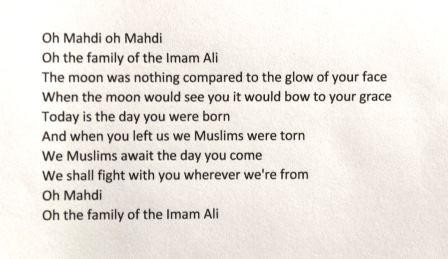 Oh Mahdi oh Mahdi
Oh the family of the Imam Ali
The moon was nothing compared to the glow of your face
When the moon would see you it would bow to your grace
Today is the day you were born
And when you left us we Muslims were torn
We Muslims await the day you come
We shall fight with you wherever we're from
Oh Mahdi
Oh the family of the Imam Ali